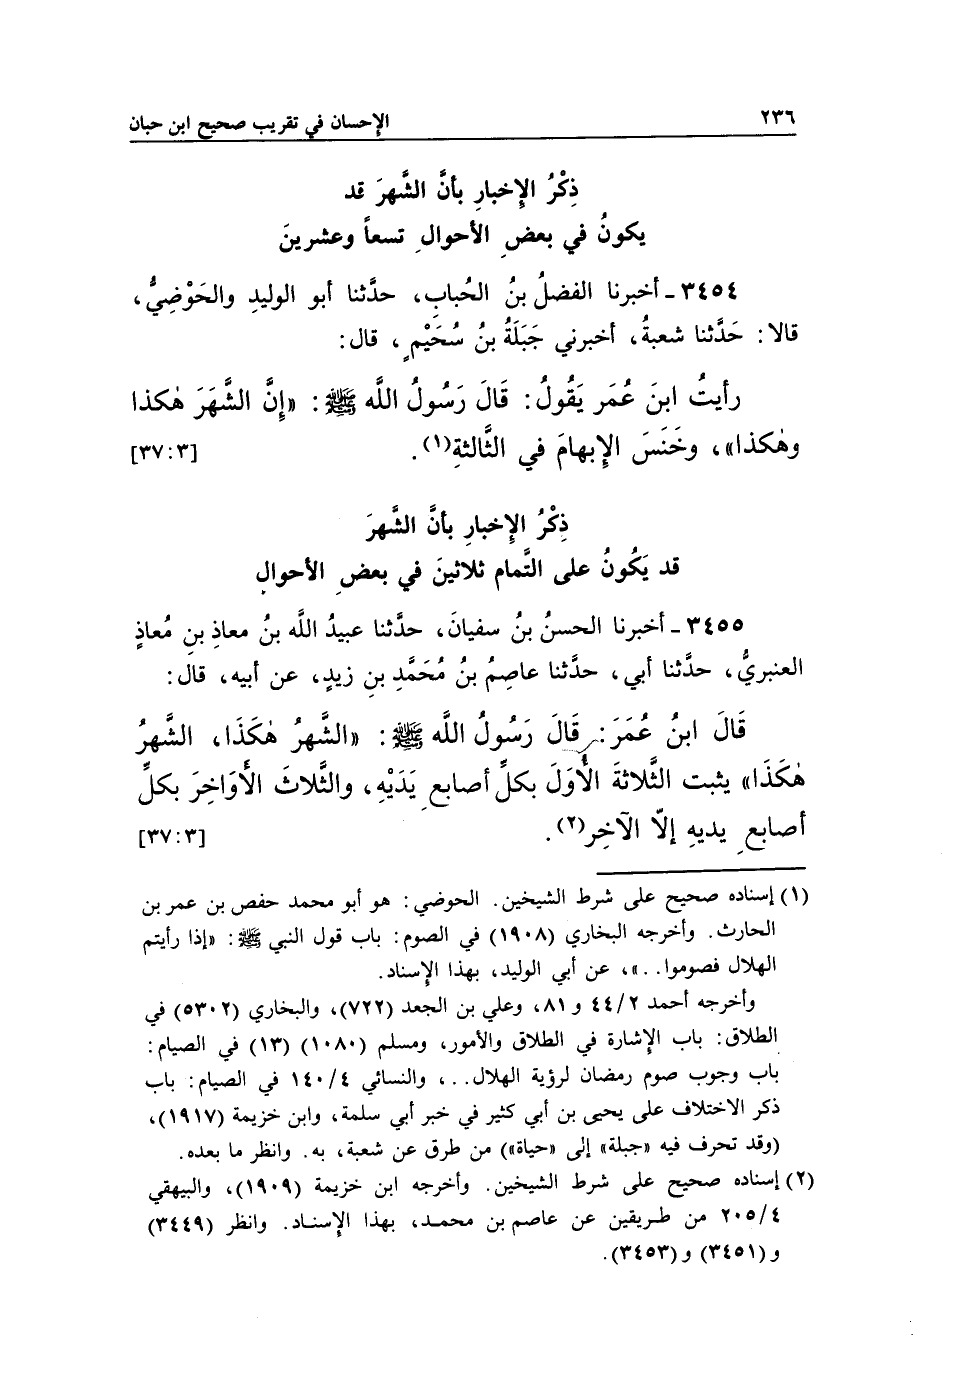 ٢٣٦ الإحسان في تقريب صحيح ابن حبان
ذِكْرُ الإِخبارِ بأنَّ الشَّهرَ قد
يكونُ في بعضِ الأحوالِ تسعاً وعشرينَ
٣٤٥٤ ـ أخبرنا الفضلُ بنُ الحُبابِ، حدَّثنا أبو الوليدِ والحَوْضِيُّ،
قالا: حَدَّثنا شعبةُ، أخبرني جَبَلَةُ بنُ سُحَيْمٍ، قال:
رأيتُ ابنَ عُمَر يَقُولُ: قَالَ رَسُولُ اللَّه ﷺ: «إنَّ الشَّهَرَ هٰكذا
وهٰكذا»، وخَنَسَ الإِبهامَ في الثَّالثةِ(١). [٣: ٣٧]
ذِكْرُ الإِخبارِ بأنَّ الشَّهرَ
قد يَكُونُ على التَّمام ثلاثينَ في بعضِ الأحوالِ
٣٤٥٥ ـ أخبرنا الحسنُ بنُ سفيانَ، حدَّثنا عبيدُ اللَّه بنُ معاذِ بنِ مُعاذٍ
العنبريُّ، حدَّثنا أبي، حدَّثنا عاصِمُ بنُ مُحَمَّدِ بنِ زيدٍ، عن أبيه، قال:
قَالَ ابنُ عُمَرَ: قَالَ رَسُولُ اللَّه ﷺ: «الشَّهرُ هٰكَذَا، الشَّهرُ
هٰكَذَا» يثبت الثَّلاثةَ الأُوَلَ بكلِّ أصابعِ يَدَيْهِ، والثَّلاثَ الأَوَاخِرَ بكلِّ
أصابعِ يديهِ إلّا الآخِر(٢). [٣: ٣٧]
(١) إسناده صحيح على شرط الشيخين. الحوضي: هو أبو محمد حفص بن عمر بن
الحارث. وأخرجه البخاري (١٩٠٨) في الصوم: باب قول النبي ﷺ: «إذا رأيتم
الهلال فصوموا..»، عن أبي الوليد، بهذا الإِسناد.
وأخرجه أحمد ٤٤/٢ و ٨١، وعلي بن الجعد (٧٢٢)، والبخاري (٥٣٠٢) في
الطلاق: باب الإِشارة في الطلاق والأمور، ومسلم (١٠٨٠) (١٣) في الصيام:
باب وجوب صوم رمضان لرؤية الهلال..، والنسائي ١٤٠/٤ في الصيام: باب
ذكر الاختلاف على يحيى بن أبي كثير في خبر أبي سلمة، وابن خزيمة (١٩١٧)،
(وقد تحرف فيه «جبلة» إلى «حياة») من طرق عن شعبة، به. وانظر ما بعده.
(٢) إسناده صحيح على شرط الشيخين. وأخرجه ابن خزيمة (١٩٠٩)، والبيهقي
٢٠٥/٤ من طريقين عن عاصم بن محمد، بهذا الإِسناد. وانظر (٣٤٤٩)
و (٣٤٥١) و (٣٤٥٣).